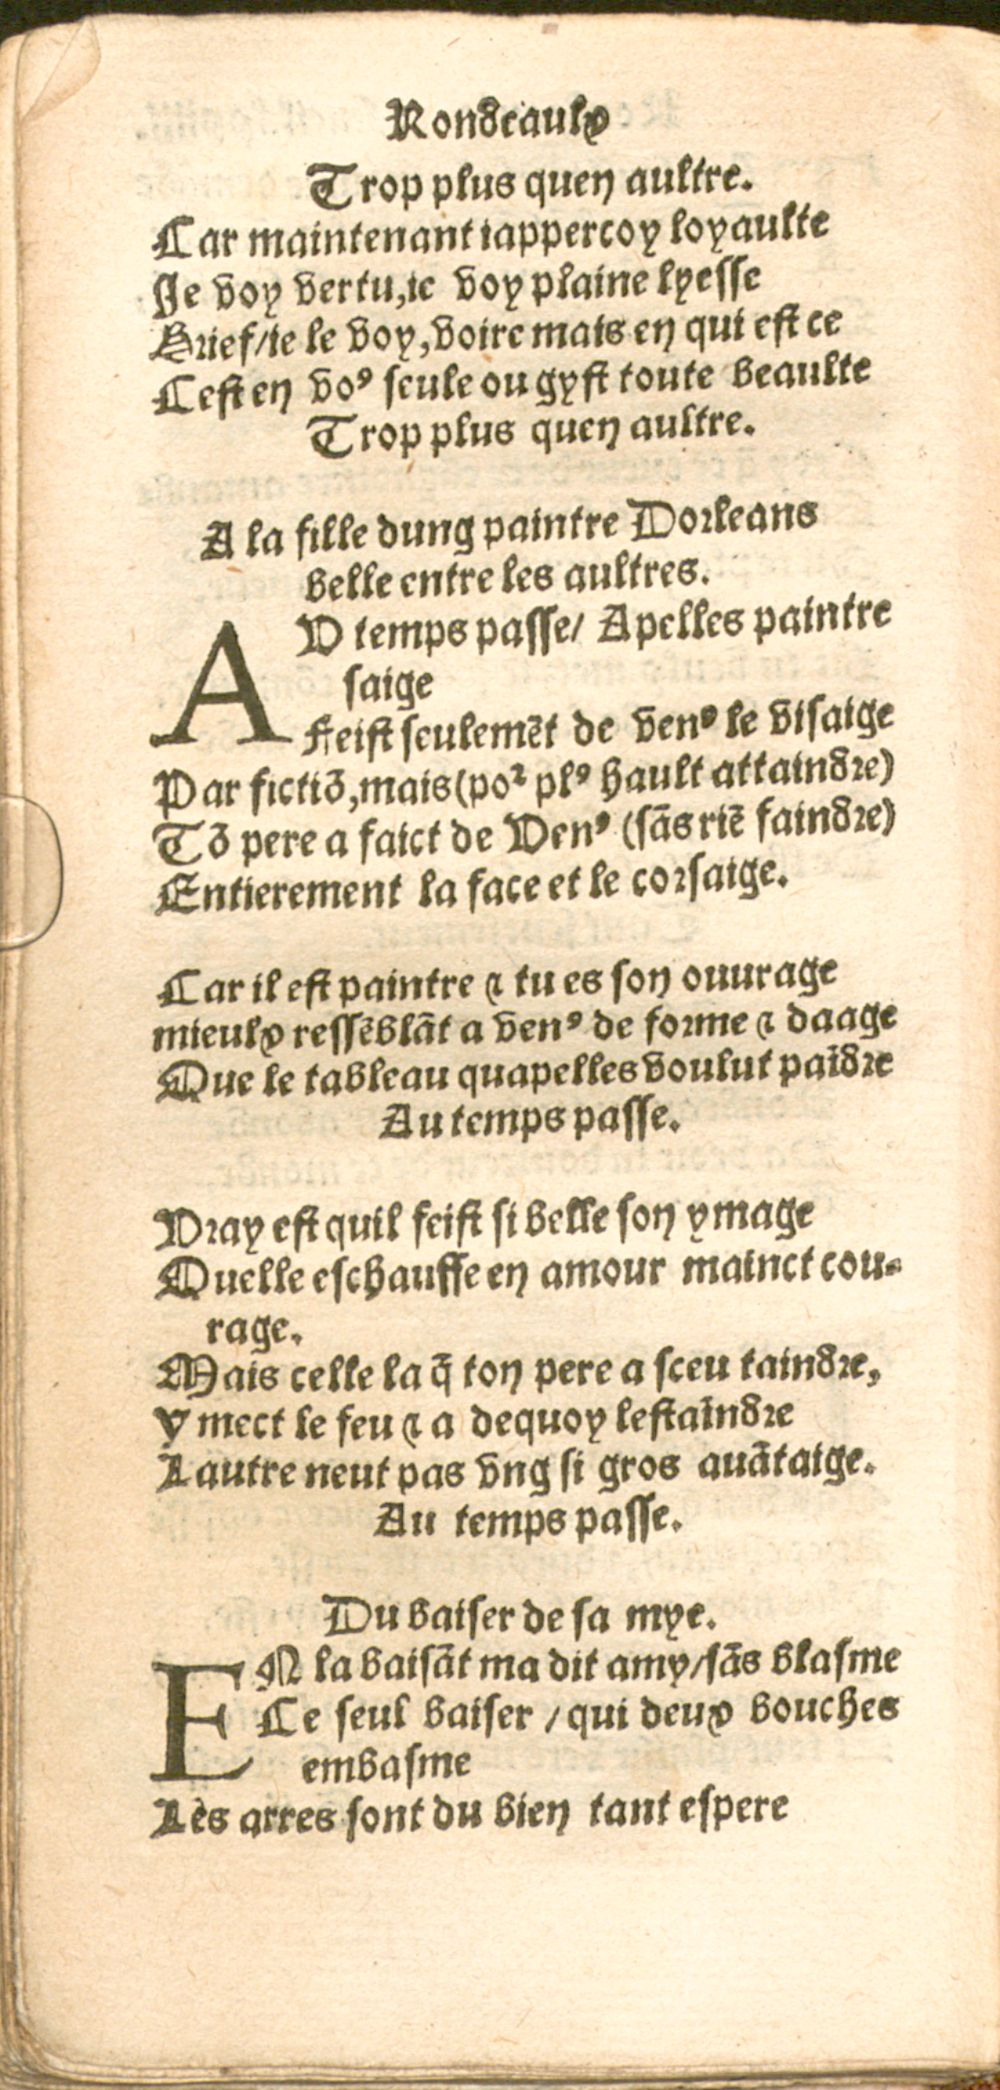 Rondeaulx
Trop plus quen aultre.
Car maintenant iappercoy loyaulte
Je voy vertu,ie voy plaine lyesse
Brief/ie le voy,voire mais en qui est ce
Cest en voꝰ seule ou gyst toute beaulte
Trop plus quen aultre.
A la fille dung paintre Dorleans
belle entre les aultres.
AV temps passe/ Apelles paintre
saige
Feist seulemẽt de venꝰ le visaige
Par fictiõ,mais(poꝛ plꝰ hault attaindre)
Tõ pere a faict de Venꝰ (sãs riẽ faindre)
Entierement la face et le corsaige.
Car il est paintre ⁊ tu es son ouurage
mieulx ressẽblãt a venꝰ de forme ⁊ daage
Que le tableau quapelles voulut paĩdre
Au temps passe.
Vray est quil feist si belle son ymage
Quelle eschauffe en amour mainct cou-
rage.
Mais celle la q̃ ton pere a sceu taindre,
y mect le feu ⁊ a dequoy lestaindre
Lautre neut pas vng si gros auãtaige.
Au temps passe.
Du baiser de sa mye.
EN la baisãt ma dit amy/sãs blasme
Ce seul baiser /qui deux bouches
embasme
Les arres sont du bien tant espere